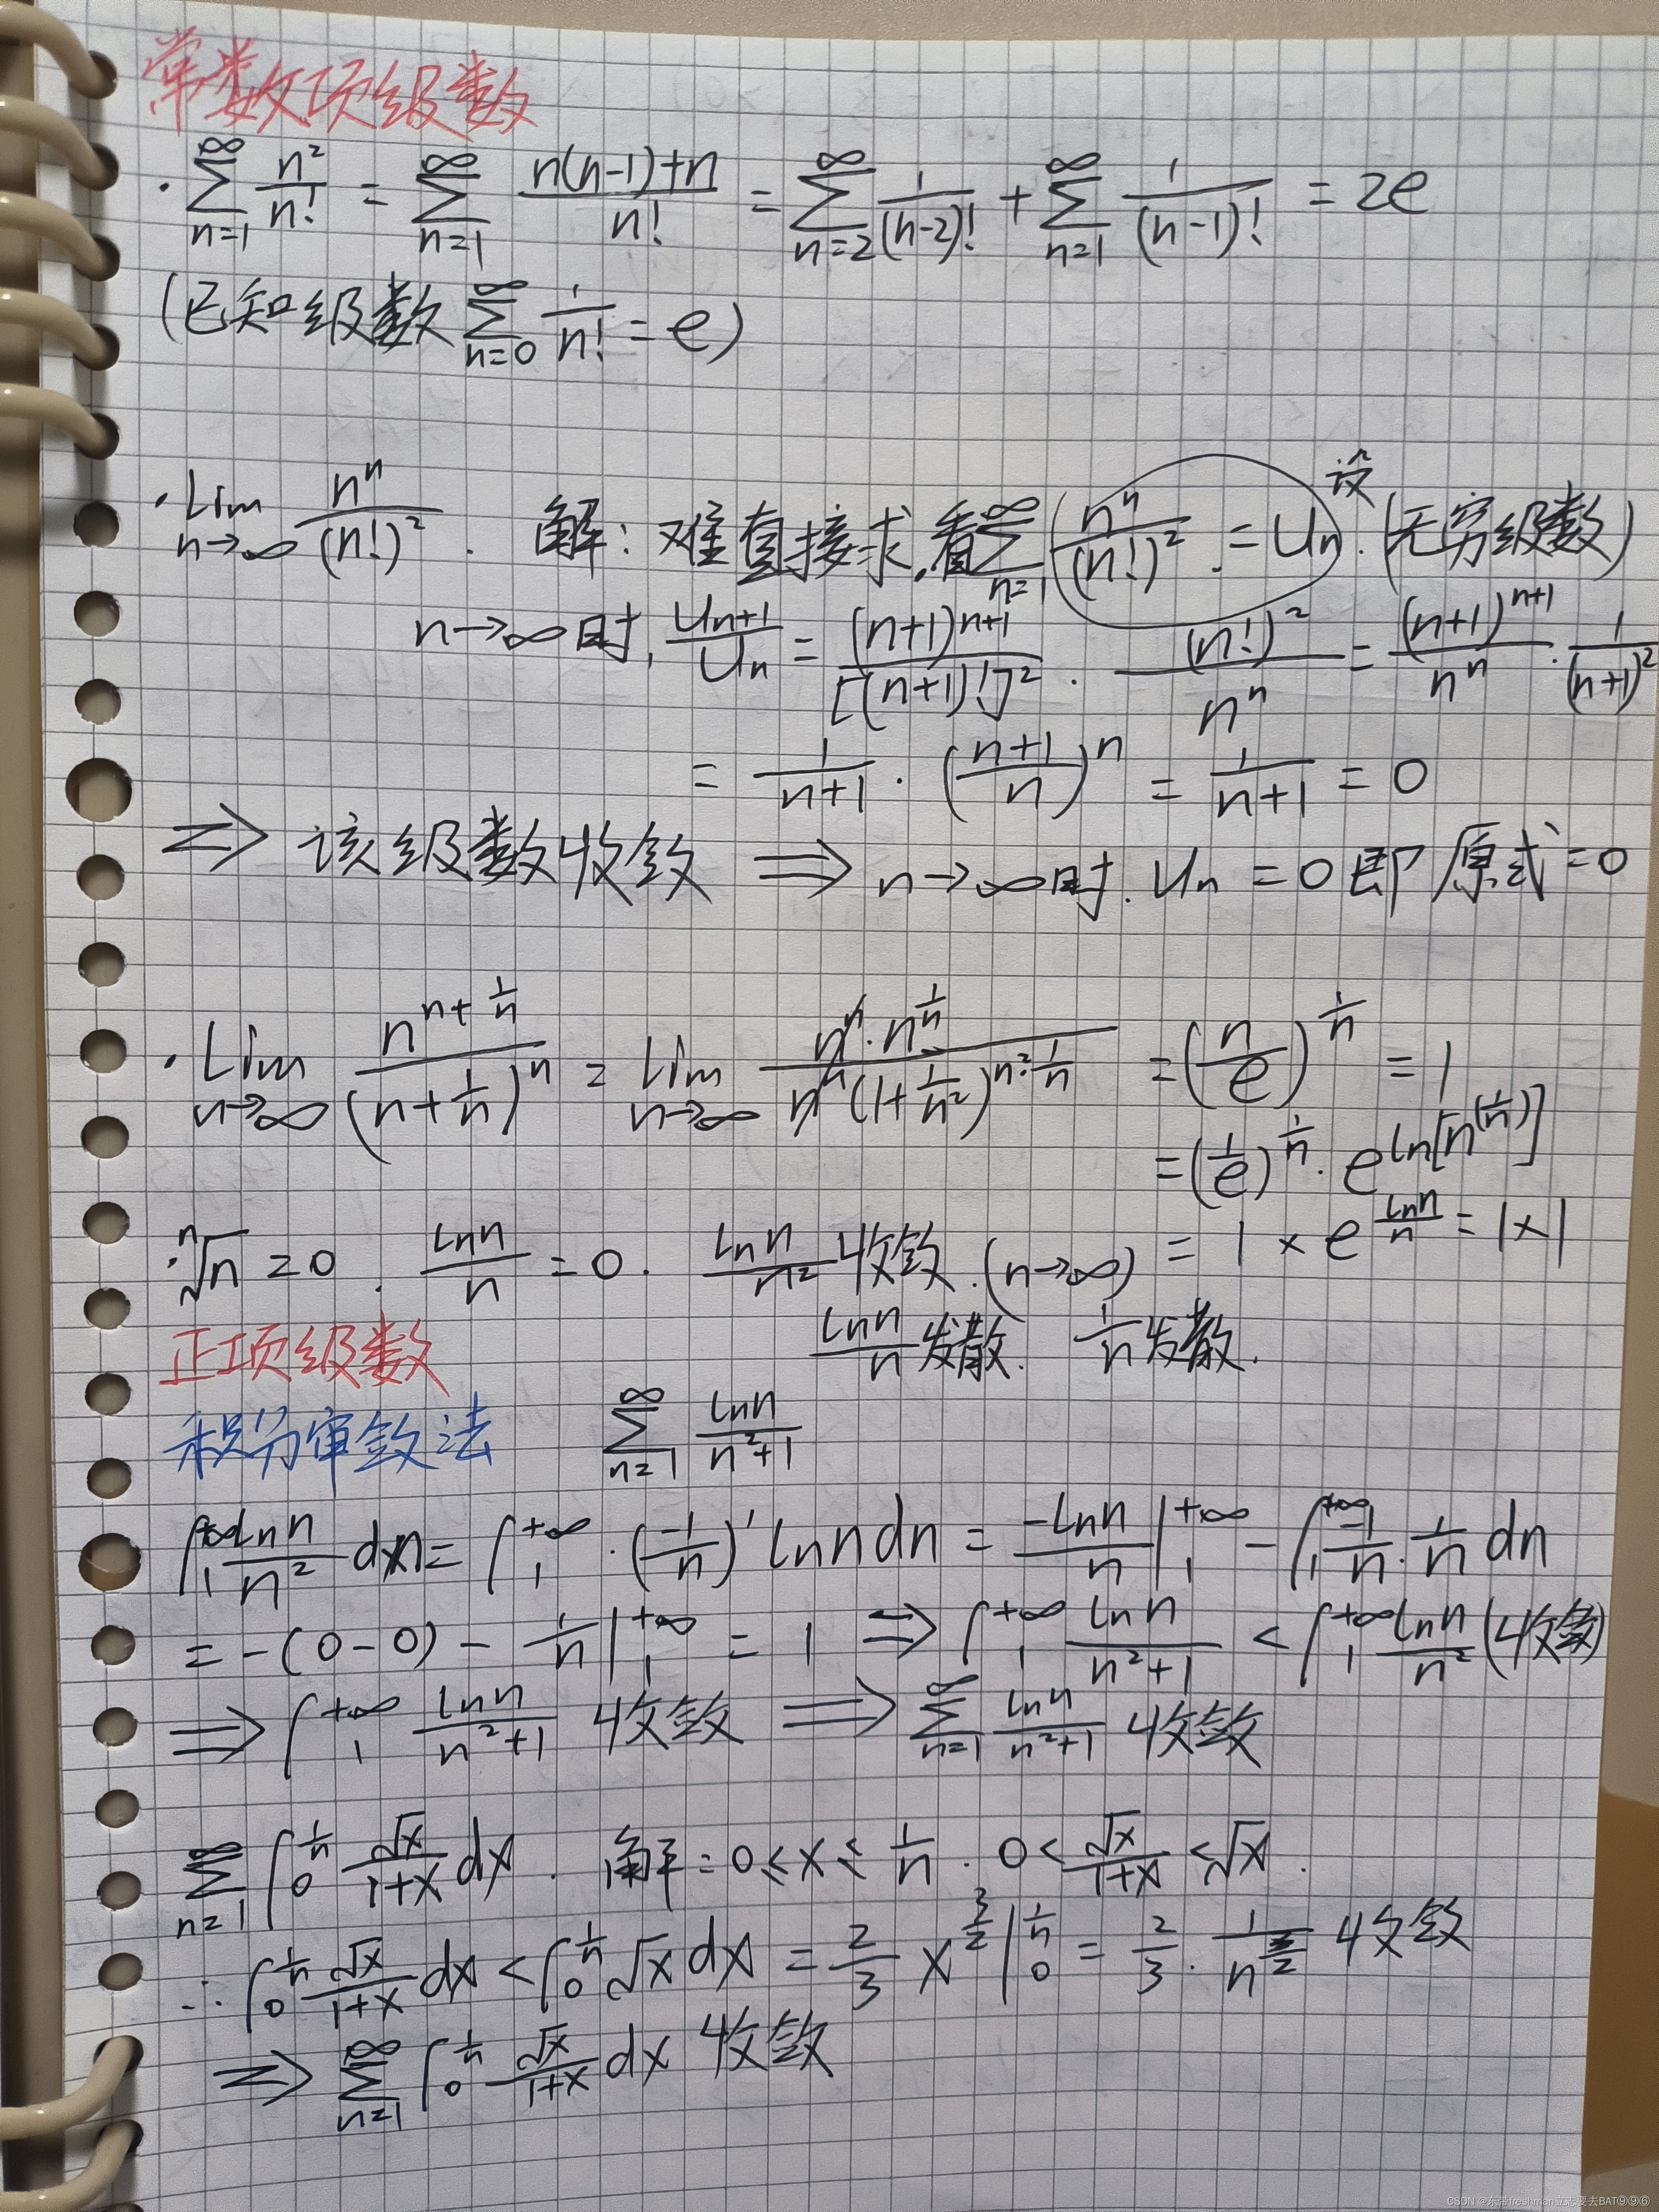 常数项级数
· ∑_{n=1}^{∞} n²/n! = ∑_{n=1}^{∞} (n(n-1)+n)/n! = ∑_{n=2}^{∞} 1/(n-2)! + ∑_{n=1}^{∞} 1/(n-1)! = 2e
(已知级数 ∑_{n=0}^{∞} 1/n! = e)
· Lim_{n→∞} n^n/(n!)² . 解: 难直接求,看 ∑_{n=1}^{∞} (n^n/(n!)² = Un) 设 . (无穷级数)
n→∞时, U_{n+1}/U_n = (n+1)^{n+1}/[(n+1)!]² · (n!)²/n^n = (n+1)^{n+1}/n^n · 1/(n+1)²
= 1/(n+1) · ((n+1)/n)^n = 1/(n+1) = 0
⇒ 该级数收敛 ⇒ n→∞时. Un = 0 即原式=0
· Lim_{n→∞} n^{n+1/n}/(n+1/n)^n = Lim_{n→∞} n^n·n^{1/n}/(n^n(1+1/n²)^{n²·1/n}) = (n/e)^{1/n} = 1
= (1/e)^{1/n} · e^{ln[n^(1/n)]}
· ⁿ√n = 0 . lnn/n = 0 . lnn/n² 收敛 . (n→∞) = 1 × e^{lnn/n} = 1×1
lnn/n 发散. 1/n 发散.
正项级数
积分审敛法 ∑_{n=1}^{∞} lnn/(n²+1)
∫_1^{+∞} lnn/n² dn = ∫_1^{+∞} · (-1/n)' lnn dn = -lnn/n |_1^{+∞} - ∫_1^{+∞} -1/n · 1/n dn
= -(0-0) - 1/n |_1^{+∞} = 1 ⇒ ∫_1^{+∞} lnn/(n²+1) < ∫_1^{+∞} lnn/n² (收敛)
⇒ ∫_1^{+∞} lnn/(n²+1) 收敛 ⇒ ∑_{n=1}^{∞} lnn/(n²+1) 收敛
∑_{n=1}^{∞} ∫_0^{1/n} √x/(1+x) dx . 解: 0≤x≤1/n . 0<√x/(1+x)<√x .
∴ ∫_0^{1/n} √x/(1+x) dx < ∫_0^{1/n} √x dx = 2/3 x^{3/2} |_0^{1/n} = 2/3 · 1/n^{3/2} 收敛
⇒ ∑_{n=1}^{∞} ∫_0^{1/n} √x/(1+x) dx 收敛